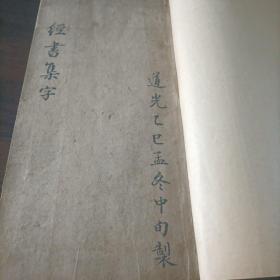 經書集字
道光乙巳孟冬中旬製